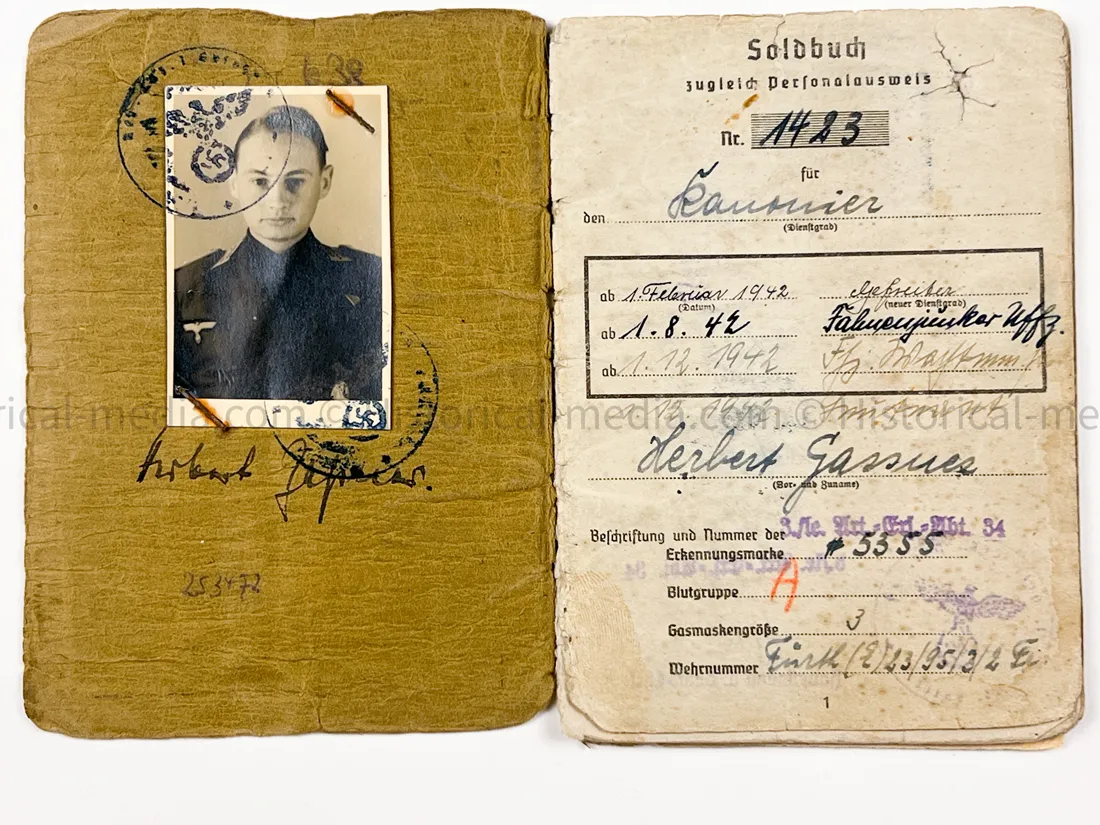 Herbert
253472
Soldbuch
zugleich Personalausweis
Nr. 1423
für
den Kanonier
(Dienstgrad)
ab 1. Februar 1942 Gefreiter
(Datum) (neuer Dienstgrad)
ab 1. 8. 42 Fahnenjunker Uffz.
ab 1. 12. 1942
historical-media.com © historical-me
Herbert Gassner
(Vor- und Zuname)
3./le. Art.-Ers.-Abt. 34
Beschriftung und Nummer der
Erkennungsmarke 5355
Blutgruppe A
Gasmaskengröße 3
Wehrnummer Fürth (E)/23/95/3/2
1